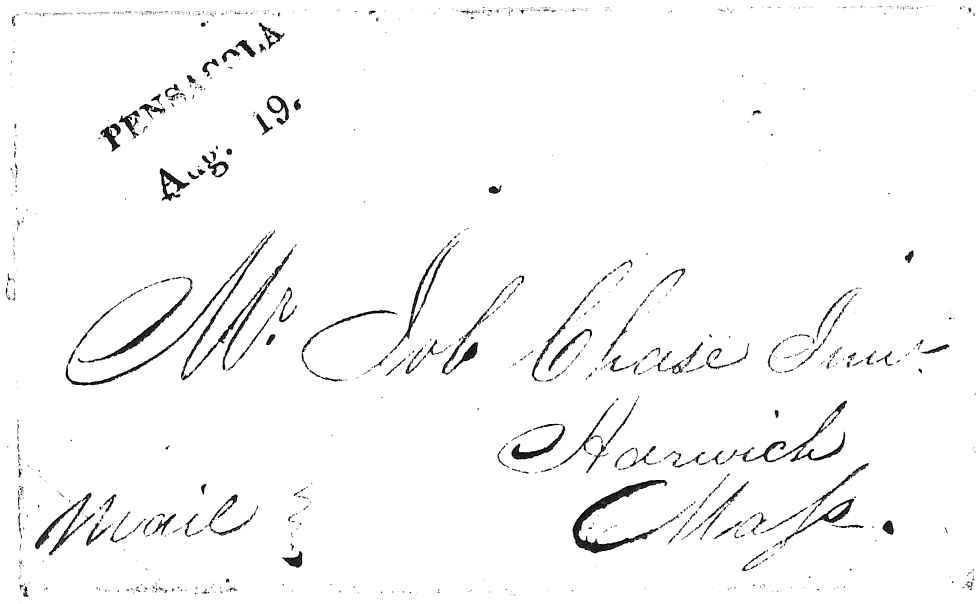 PENSACOLA
Aug. 19.
Mr. Job Chase Junr.
Harwich
Mail
Mass.